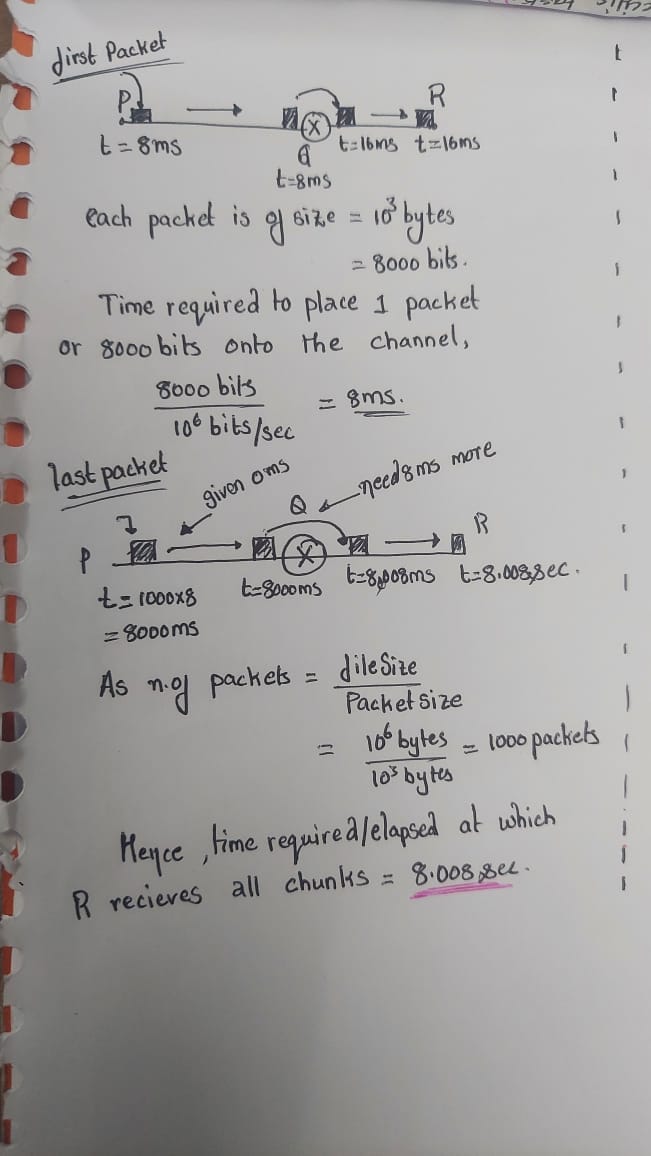 first Packet
P R
t = 8ms Q t=16ms t=16ms
t=8ms
each packet is of size = 10³ bytes
= 8000 bits.
Time required to place 1 packet
or 8000 bits onto the channel,
8000 bits / 10⁶ bits/sec = 8ms.
last packet
given 0ms Q need 8ms more
P X R
t = 1000x8 t=8000ms t=8,008ms t=8.008,sec.
= 8000ms
As n.of packets = file Size / Packet size
= 10⁶ bytes / 10³ bytes = 1000 packets
Hence , time required/elapsed at which
R recieves all chunks = 8.008,sec.